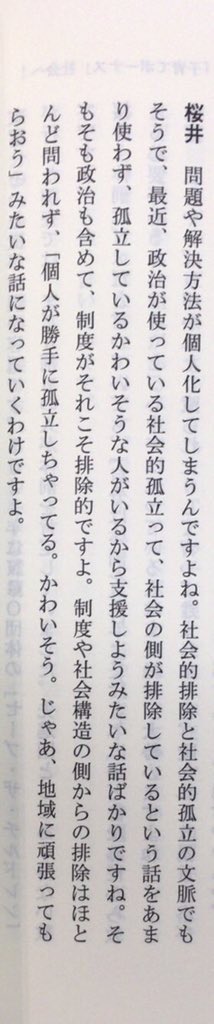 桜井　問題や解決方法が個人化してしまうんですよね。社会的排除と社会的孤立の文脈でも
そうで、最近、政治が使っている社会的孤立って、社会の側が排除しているという話をあま
り使わず、孤立しているかわいそうな人がいるから支援しようみたいな話ばかりですね。そ
もそも政治も含めて、制度がそれこそ排除的ですよ。制度や社会構造の側からの排除はほと
んど問われず、「個人が勝手に孤立しちゃってる。かわいそう。じゃあ、地域に頑張っても
らおう」みたいな話になっていくわけですよ。